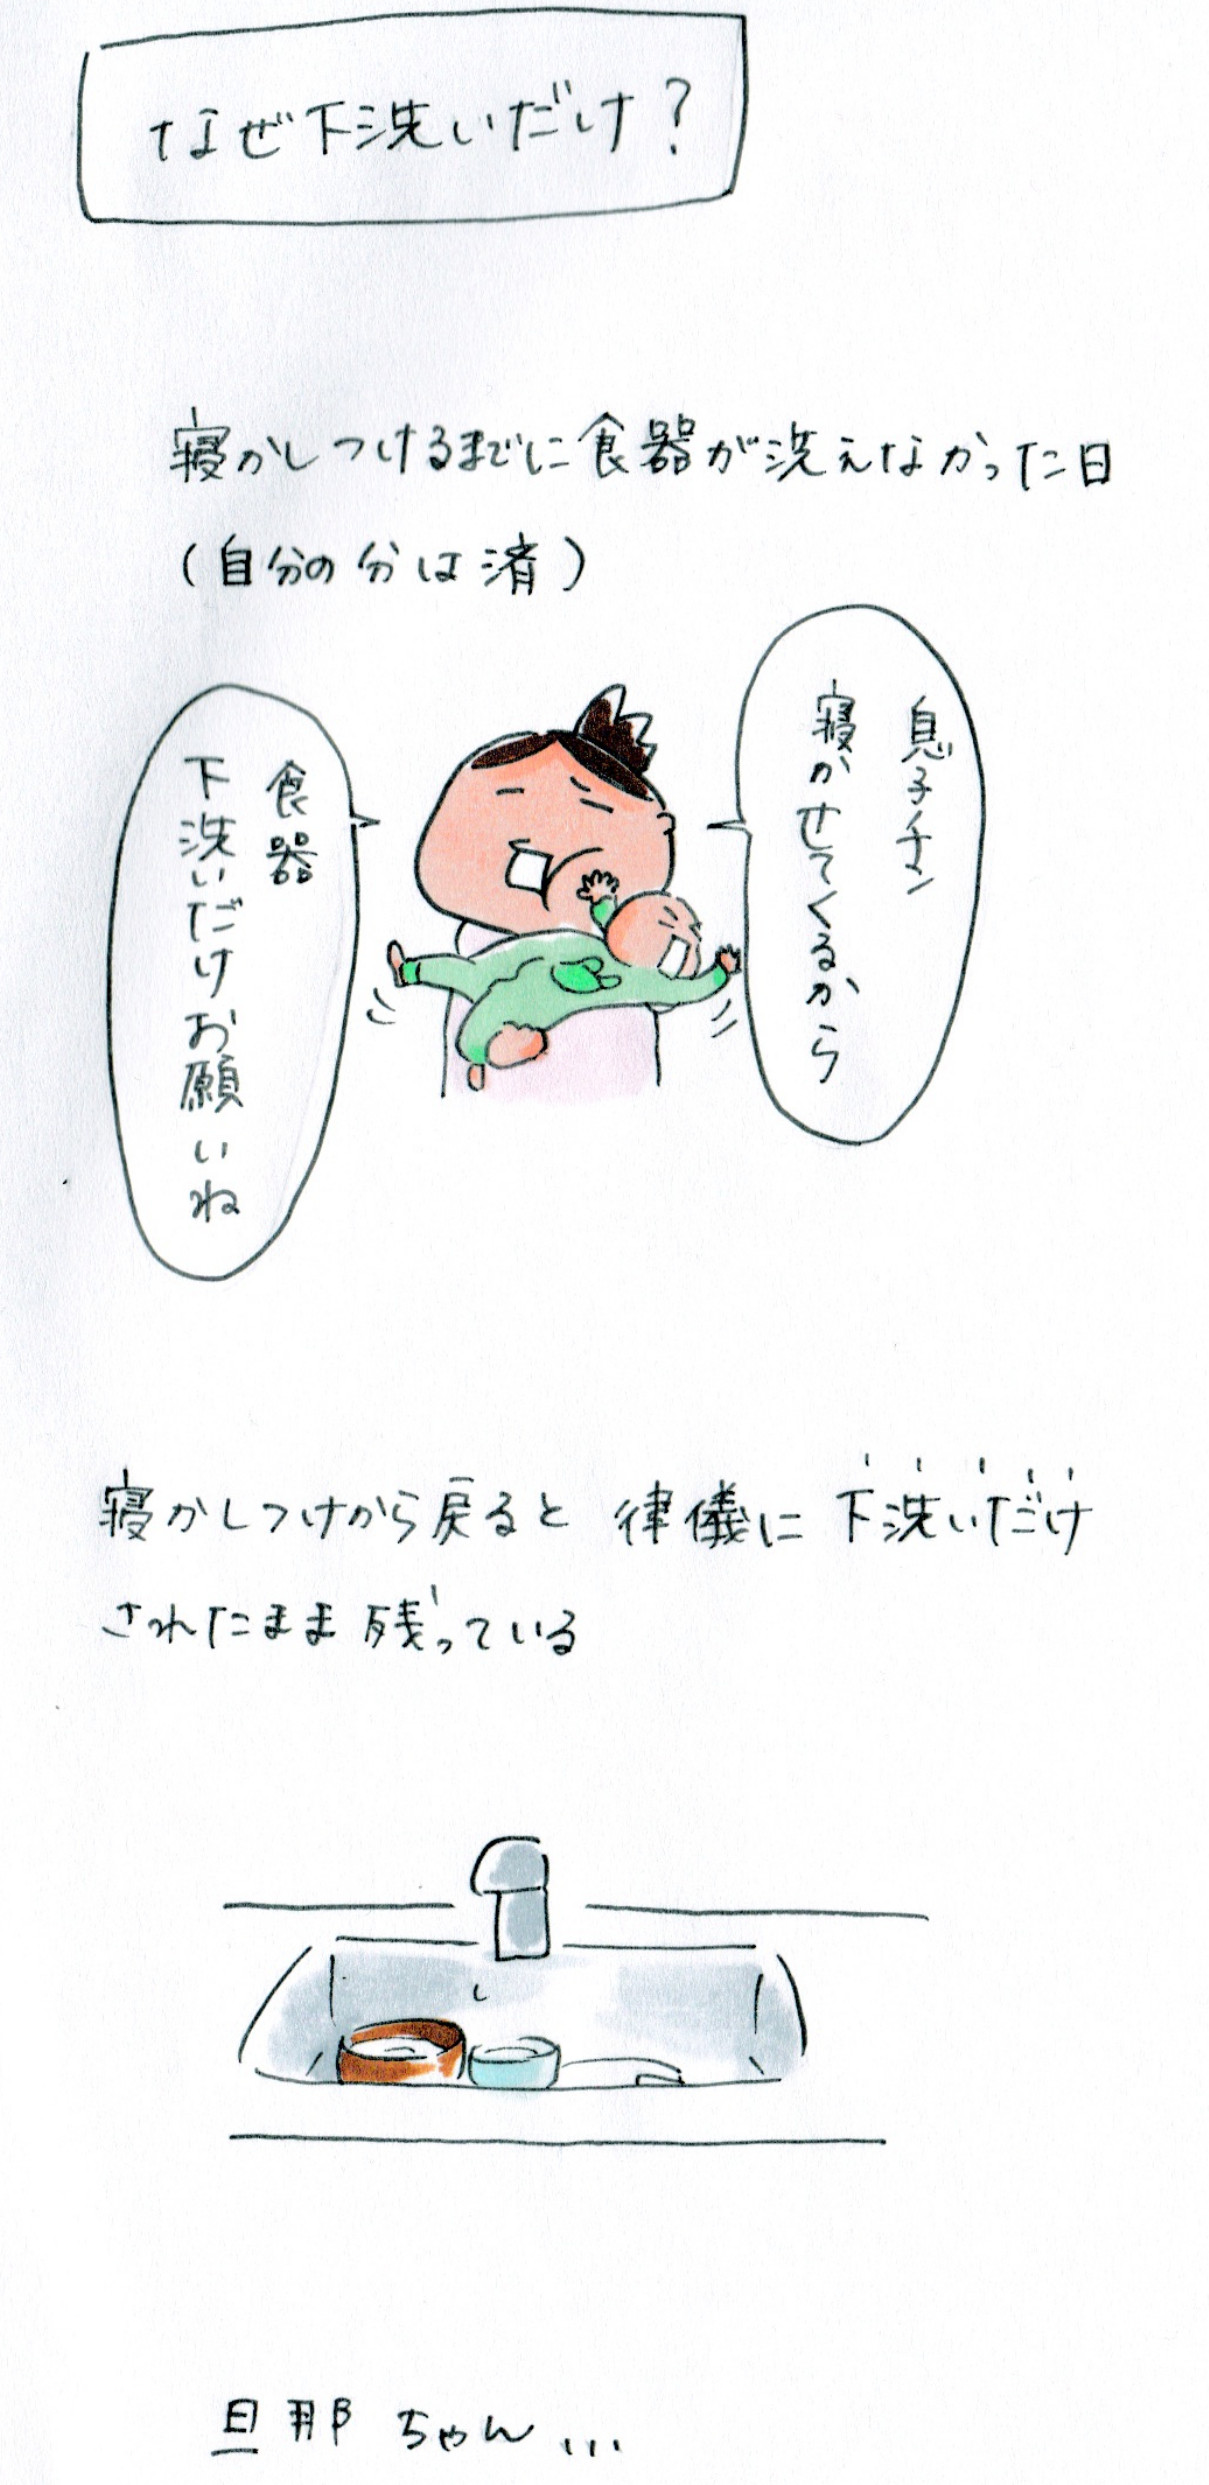 なぜ下洗いだけ？
寝かしつけるまでに食器が洗えなかった日
（自分の分は済）
息子チャン
寝かせてくるから
食器
下洗いだけお願いね
寝かしつけから戻ると 律儀に下洗いだけ
されたまま残っている
旦那ちゃん...